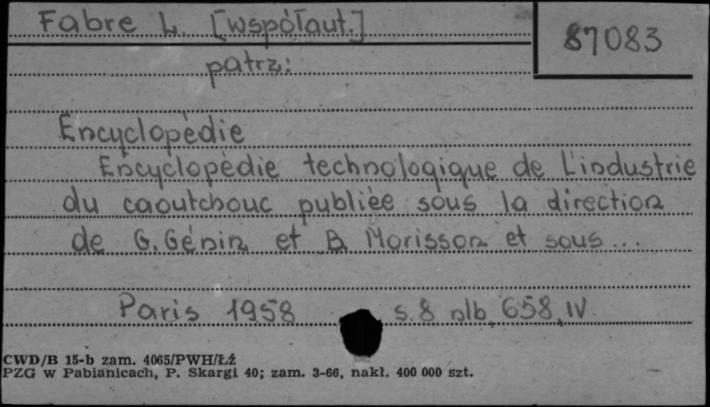 Fabre L. [współaut.]
87083
patrz:
Encyclopèdie
Encyclopèdie technologique de L'industrie
du caoutchouc publièe sous la direction
de G. Génin et B. Morisson et sous...
Paris 1958 s. 8 nlb, 658, IV
CWD/B 15-b zam. 4065/PWH/ŁŻ
PZG w Pabianicach, P. Skargi 40; zam. 3-66, nakł. 400 000 szt.